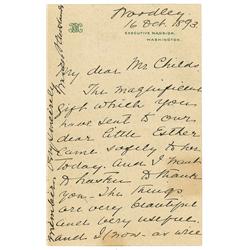 Woodley
16 Oct. 1893.
EXECUTIVE MANSION,
WASHINGTON.
My dear Mr. Childs
The magnificent
gift which you
have sent to our
dear little Esther
came safely to her
today. And I want
to hasten to thank
you. The things
are very beautiful
and very useful
and I know as well
members very sincerely